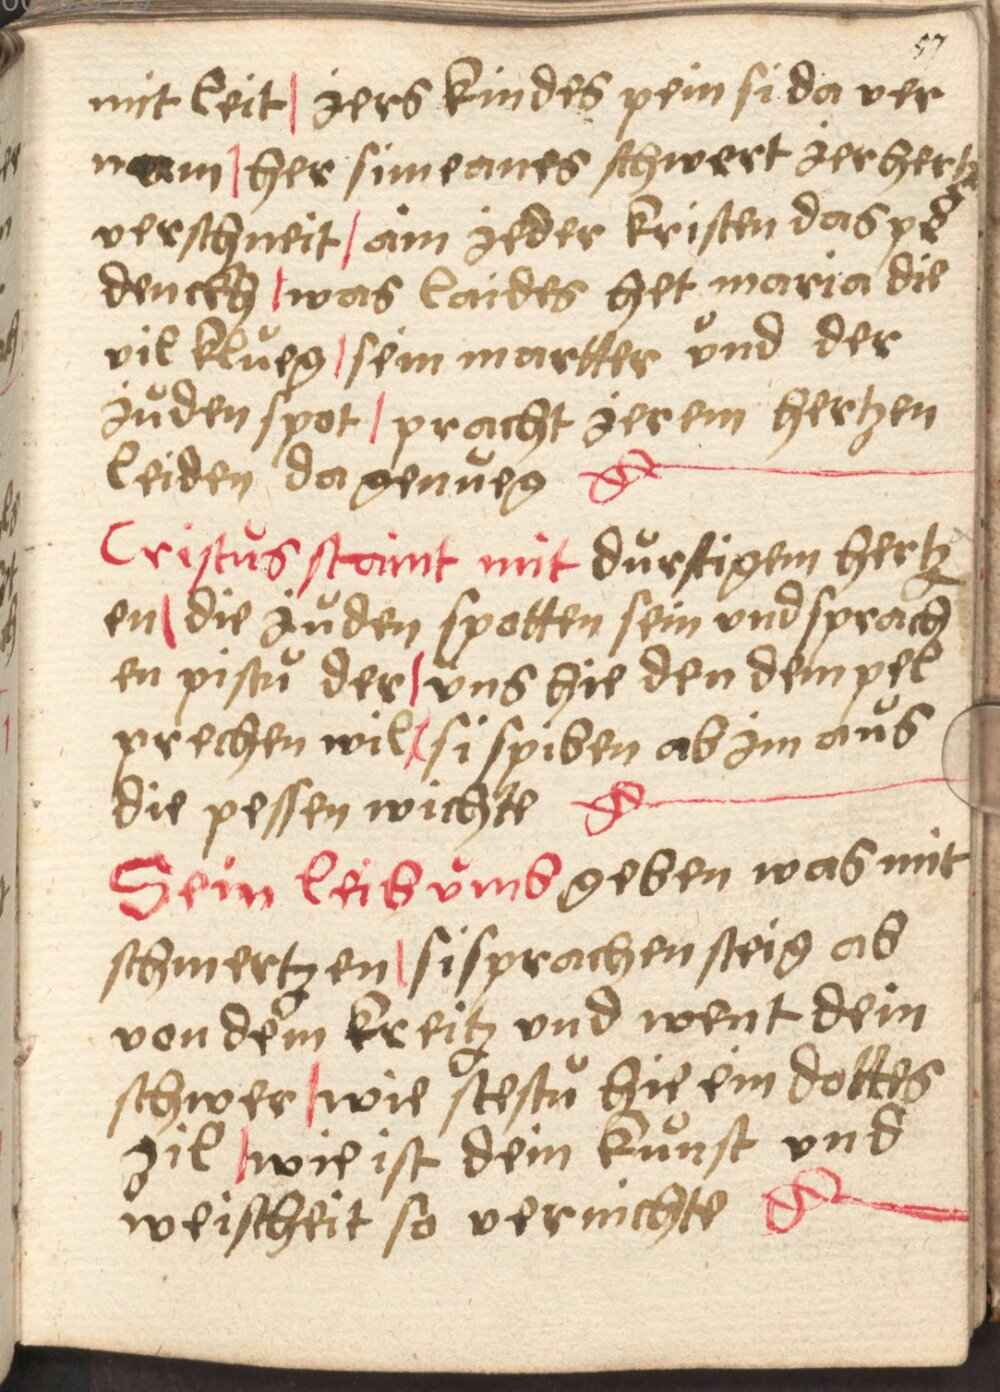 57
mit leit | jers kindes pein si da ver
nam | her simeanes schwert jer hertz
verschneit | ain jeder kristen das pe
denckh | was laides het maria die
vil klueg | sein martter und der
juden spot | pracht jerem hertzen
leiden da genueg
Cristus staint mit durstigem hertz
en | die juden spotten sein vnd sprach
en pistu der | vns hie den dempel
prechen wil | si spiben ab jm aus
die pessen wichte
Sein leib vmb geben was mit
schmertzen | si sprachen steig ab
von dem kreitz vnd went dein
schwer | wie stestu hie ein dottes
zil | wie ist dein kunst vnd
weischeit so vernichte